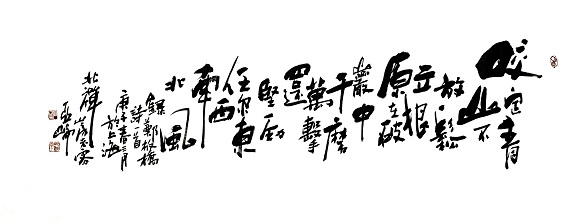 咬定青
山不
放鬆
立根
原在破
巖中
千磨
萬擊
還
堅勁
任爾東
西
南
北風
錄鄭板橋
詩一首
庚子春三月
於上海